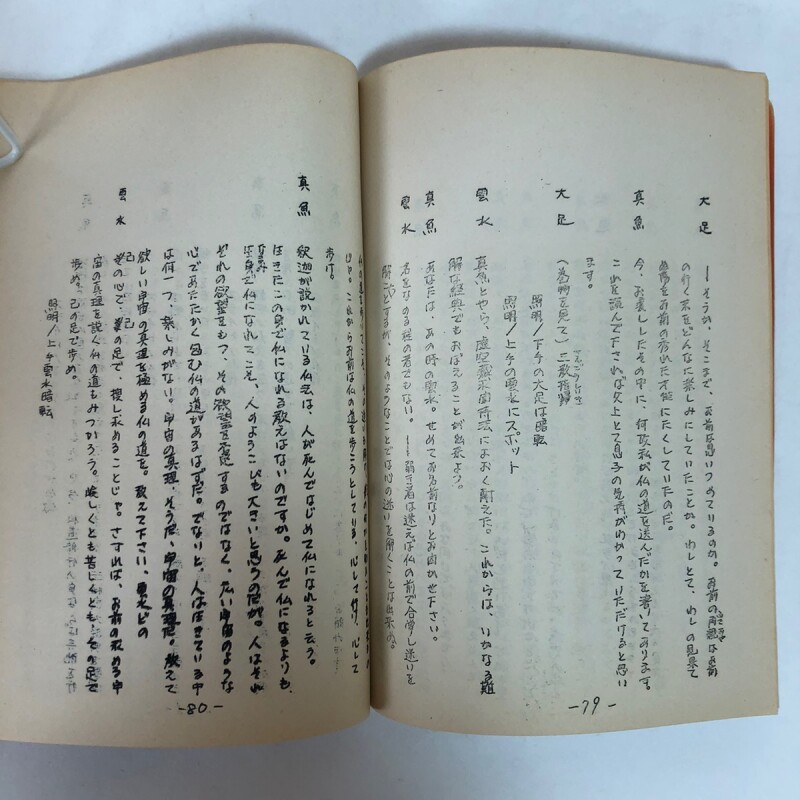 大足
―そうか、そこまで、お前は思いつめているのか。お前の両親はお前
の行く末をどんなに楽しみにしていたことか。わしとて、わしの見果て
ぬ夢をお前の秀れた才能にたくしていたのだ。
真魚
今、お渡ししたその中に、何故私が仏の道を選んだかを書いてあります。
これを読んで下されば父上とて息子の気持がわかっていただけると思い
ます。
大足
(巻物を見て)三教指帰
さんごうしいき
照明/下手の大足は暗転
照明/上手の雲水にスポット
雲水
真魚とやら、虚空蔵求聞持法によおく耐えた。これからは、いかなる難
解な経典でもおぼえることが出来よう。
真魚
あなたは、あの時の雲水。せめてお名前なりとお聞かせ下さい。
雲水
名をなのる程の者でもない。―弱き者は迷えば仏の前で合掌し迷いを
解こうとするが、そのようなことでは心の迷いを開くことは出来ぬ。
-79-
じゃ。これからお前は仏の道を歩こうとしている、心して行け、心して
歩け。
真魚
釈迦が説かれている仏法は、人が死んではじめて仏になれると云う。
生きたこの身で仏になれる教えはないのですか。死んで仏になるよりも、
なまみ
生身で仏になれてこそ、人のよろこびも大きいと思うのだが。人はそれ
ぞれの欲望をもつ、その欲望を否定するのではなく、広い宇宙のような
心であたたかく包む仏の道があるはずだ。でないと、人は生きている中
は何一つ、楽しみがない。宇宙の真理、そうだ、宇宙の真理だ。教えて
欲しい宇宙の真理を極める仏の道を。教えて下さい、雲水どの
雲水
己の心で、己の足で、捜し求めることじゃ。さすれば、お前の求める宇
宙の真理を説く仏の道もみつかろう。険しくとも苦しくとも、その足で
歩め。己の足で歩め。
照明/上手雲水暗転
-80-